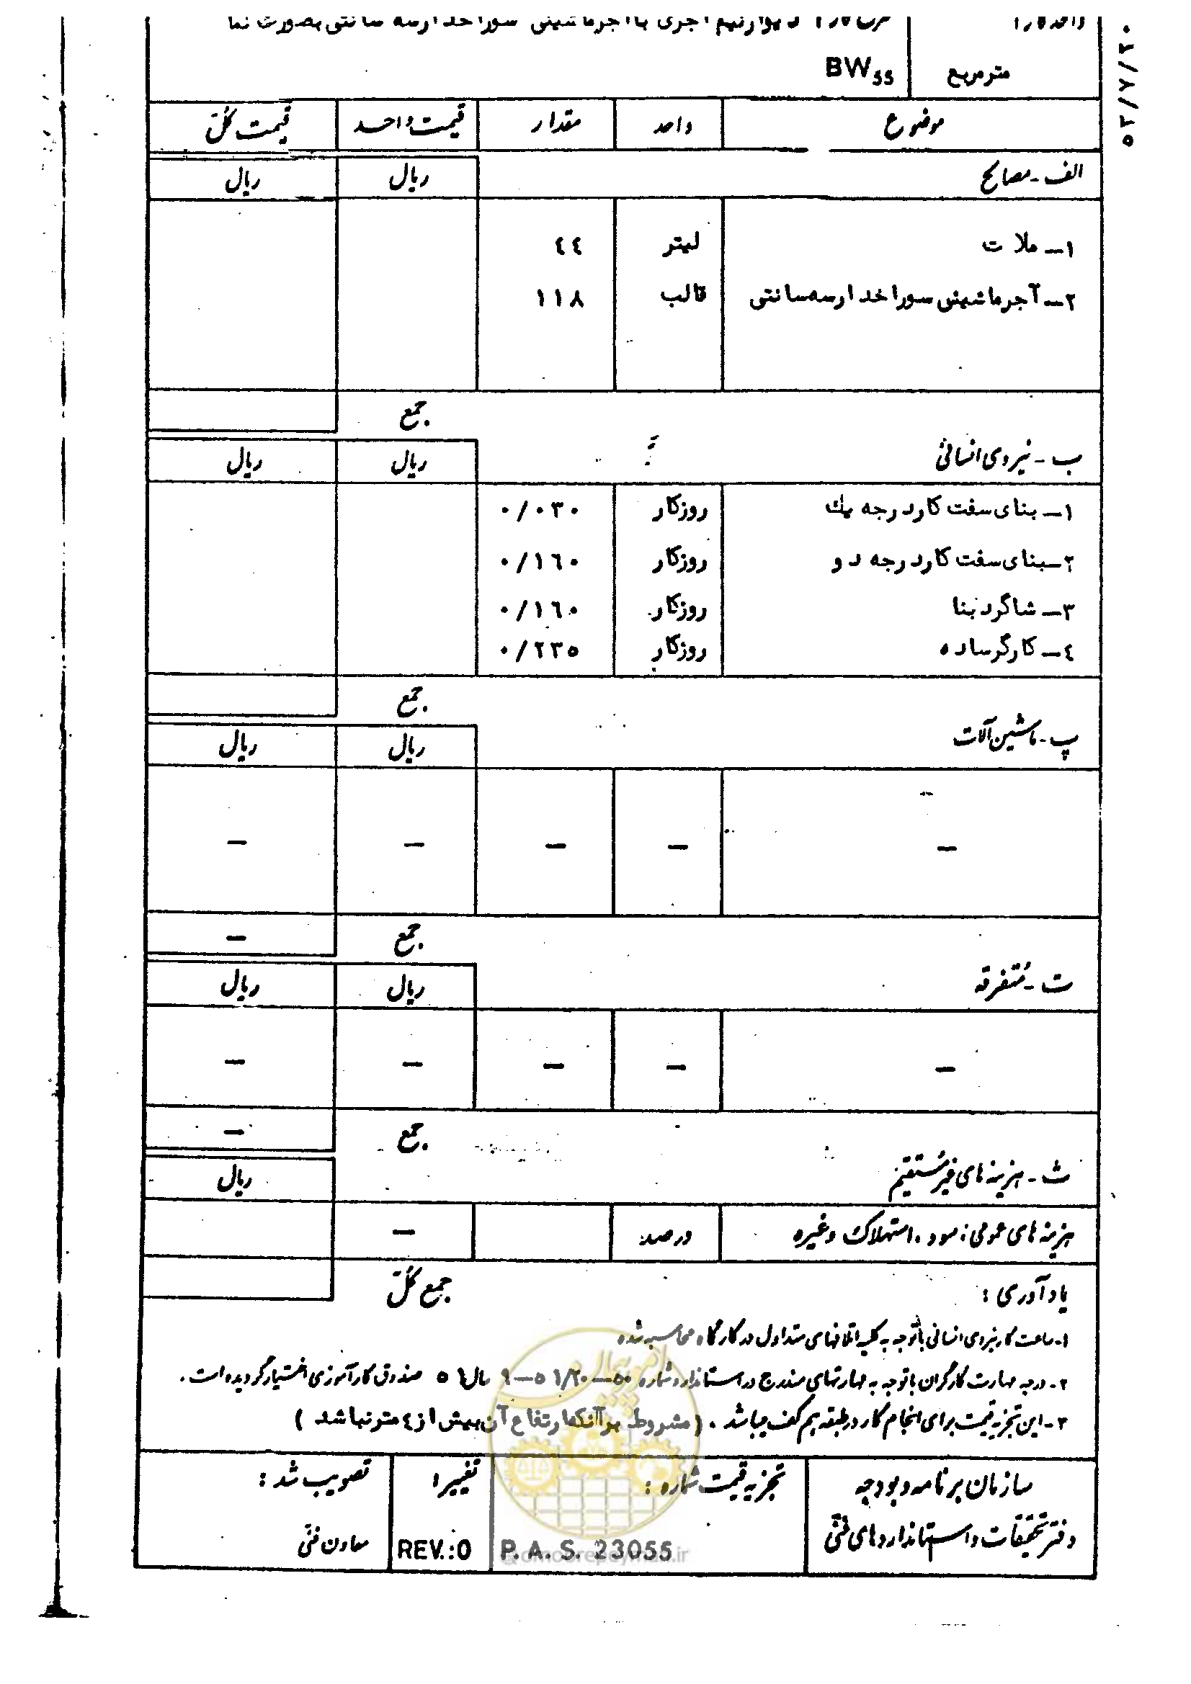 واحد کار : شرح کار : دیوار نیم آجری با آجر ماشینی سوراخدار سه سانتی بصورت نما
مترمربع BW55
٥٣/٧/٢٠
موضوع واحد مقدار قیمت واحد قیمت کل
الف - مصالح ریال ریال
١- ملات لیتر ٤٤
٢- آجر ماشینی سوراخدار سه سانتی قالب ١١٨
جمع
ب - نیروی انسانی ریال ریال
١- بنای سفت کار درجه یك روزکار ٠/٠٣٠
٢- بنای سفت کار درجه دو روزکار ٠/١٦٠
٣- شاگرد بنا روزکار ٠/١٦٠
٤- کارگر ساده روزکار ٠/٢٣٥
جمع
پ - ماشین آلات ریال ریال
– – – – –
جمع –
ت - متفرقه ریال ریال
– – – – –
جمع –
ث - هزینه های غیرمستقیم ریال
هزینه های عمومی ، سود ، استهلاک وغیره درصد –
یادآوری : جمع کل
١- ساعت کار نیروی انسانی باتوجه به کلیه اتلافهای متداول در کارگاه محاسبه شده
٢- درجه مهارت کارگران باتوجه به مهارتهای مندرج در استاندارد شماره ٥٠–٥١/٢٠–٩ سال ٥١ صندوق کارآموزی اختیار گردیده است .
٣- این تجزیه قیمت برای انجام کار در طبقه هم کف میباشد . ( مشروط بر آنکه ارتفاع آن بیش از ٤ متر نباشد )
سازمان برنامه و بودجه تجزیه قیمت شماره : تغییر : تصویب شد :
دفتر تحقیقات و استانداردهای فنی P.A.S. 23055 REV.:0 معاون فنی